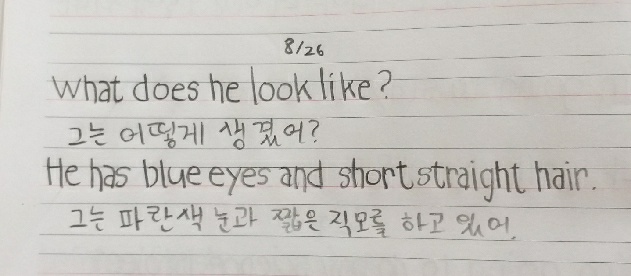 8/26
What does he look like?
그는 어떻게 생겼어?
He has blue eyes and short straight hair.
그는 파란색 눈과 짧은 직모를 하고 있어.